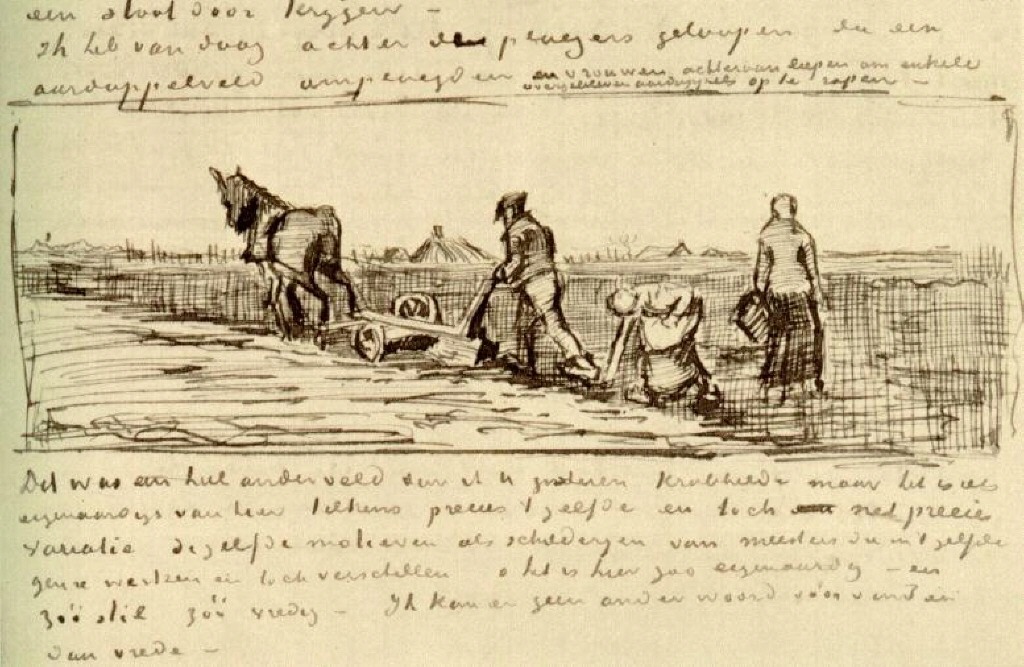 een stoot door krygen –
Ik heb van daag achter de ploegers geloopen die een
aardappelveld omploegden en vrouwen achteraan liepen om enkele
overgebleven aardappels op te rapen –
Dit was een heel ander veld dan ik U gisteren krabbelde maar het is iets
eigenaardigs van hier telkens precies 't zelfde en toch net precies
variatie dezelfde motieven als schilderyen van meesters die in 't zelfde
genre werken en toch verschillen o het is hier zoo eigenaardig – en
zóó stil zóó vredig – Ik kan er geen ander woord voor vinden
dan vrede –